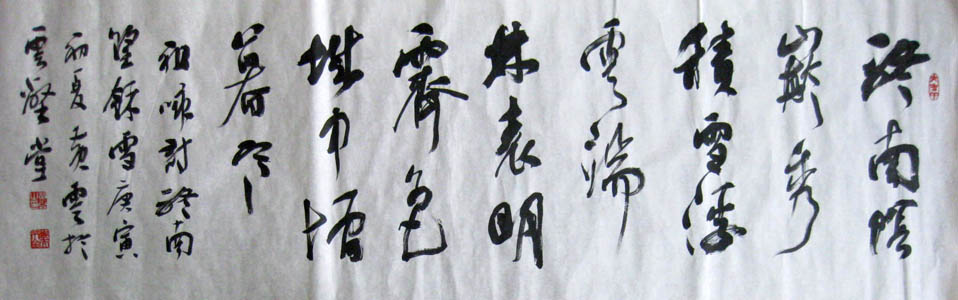 終南陰
嶺秀
積雪浮
雲端
林表明
霽色
城中增
暮寒
祖咏詩終南
望餘雪庚寅
初夏黄雲於
雲壑堂